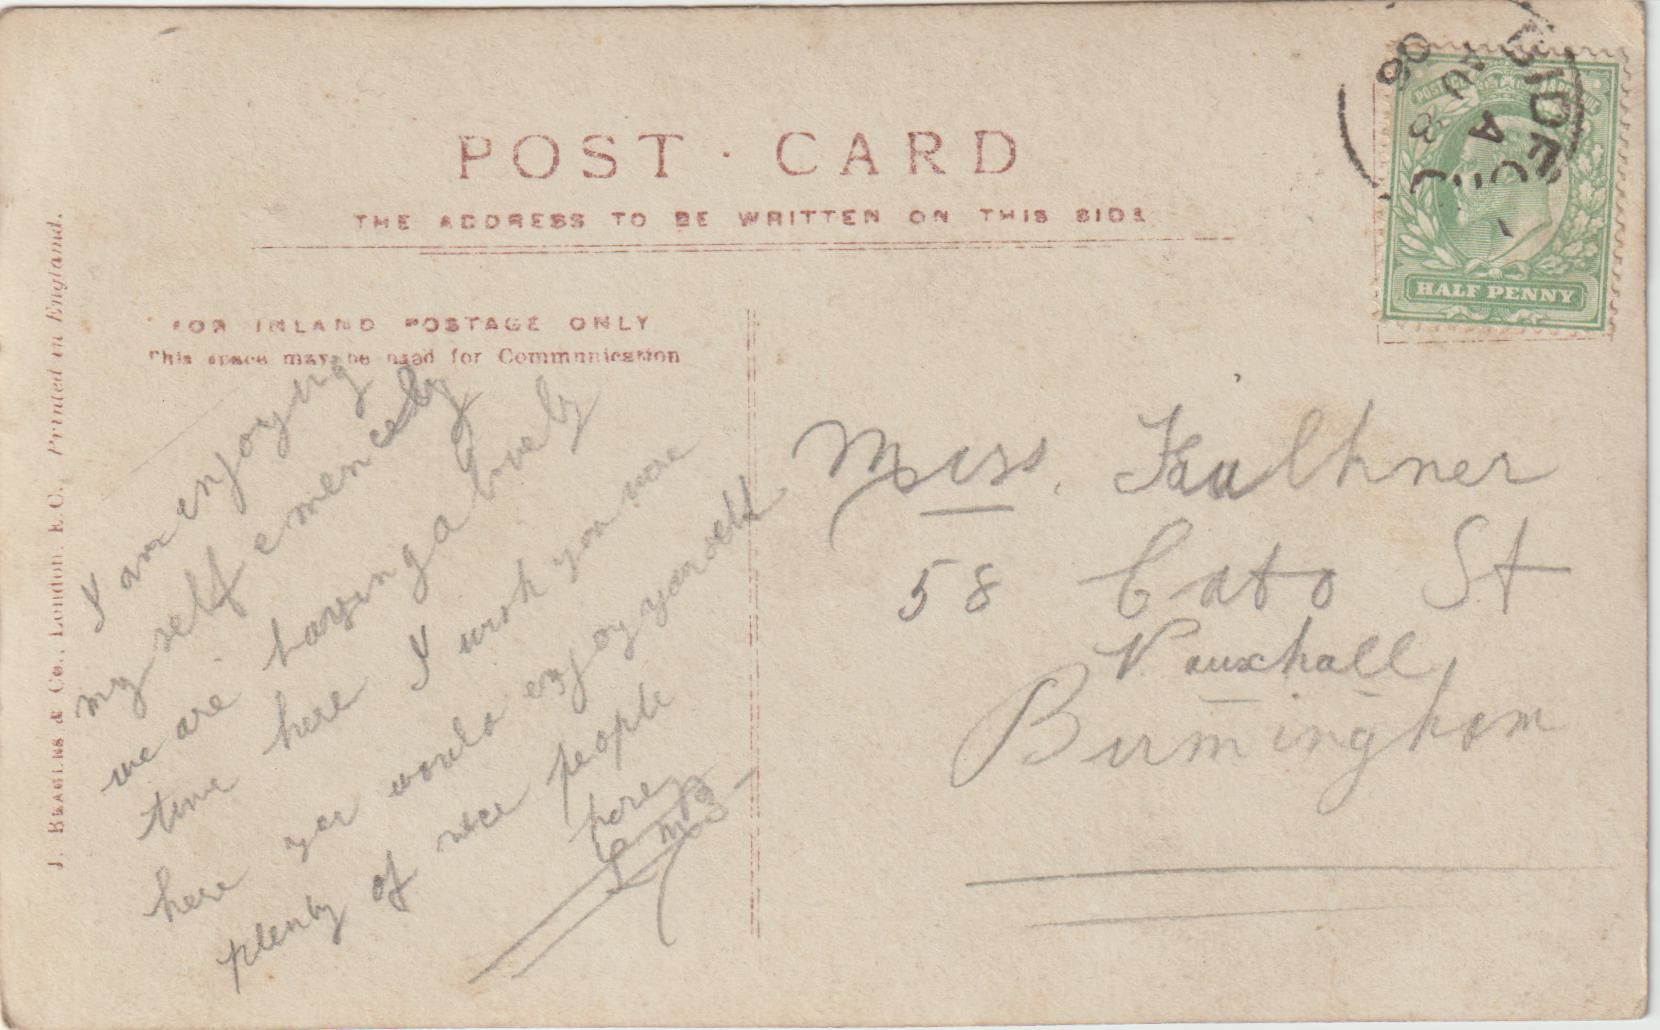 POST · CARD
THE ADDRESS TO BE WRITTEN ON THIS SIDE
FOR INLAND POSTAGE ONLY
This space may be used for Communication
J. BEAGLES & Co., London. E.C. Printed in England.
I am enjoying
my self emencely
we are having a lovely
time here I wish you were
here yer would enjoy yourself
plenty of nice people
here
Miss. Faulkner
58 Cato St
Vauxhall
Birmingham
BIDEFO
A
AU 8
08
POSTAGE
HALF PENNY